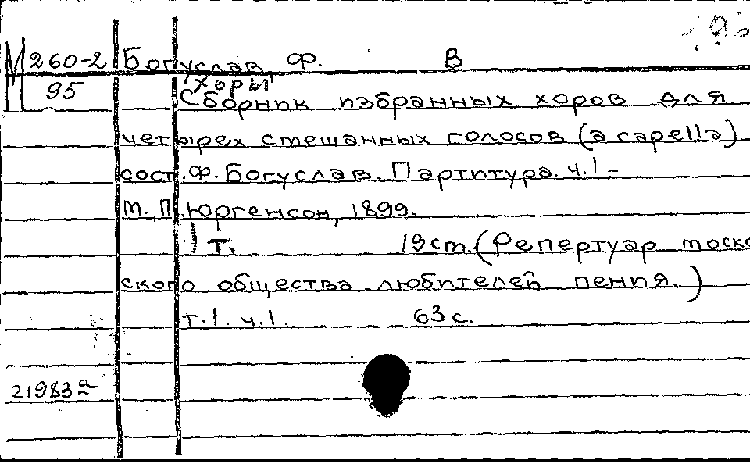 М 260-2 Богуслав Ф. В
95 [Хоры]
Сборник избранных хоров для
четырех смешанных голосов (a capella)
сост. Ф. Богуслав. Партитура. ч. 1 -
М. П. Юргенсон, 1899.
1 т. 19 cm. (Репертуар моско
ского общества любителей пения.)
т. 1. ч. 1. 63 с.
21983а